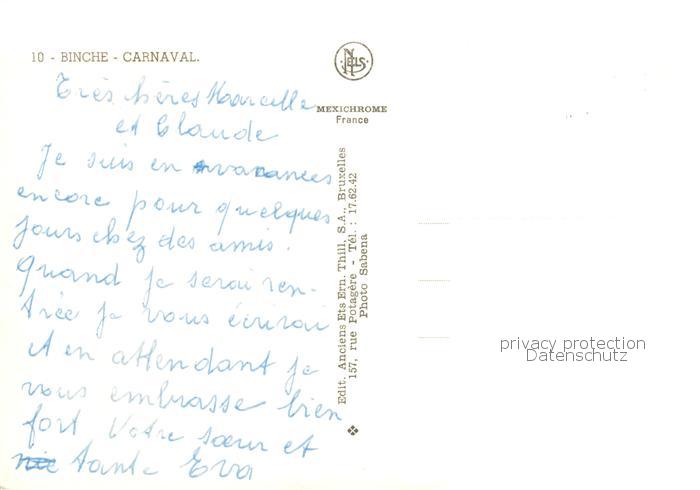 10 - BINCHE - CARNAVAL.
Très chères Marcelle
et Claude
Je suis en vacances
encore pour quelques
jours chez des amis.
Quand je serai ren-
trée je vous écrirai
et en attendant je
vous embrasse bien
fort Votre sœur et
tante Eva
NELS
MEXICHROME
France
Edit. Anciens Ets Ern. Thill, S.A., Bruxelles
157, rue Potagère - Tél. : 17.62.42
Photo Sabena
privacy protection
Datenschutz